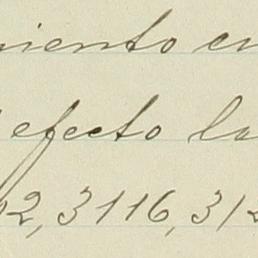 miento en
efecto la
02, 3116, 312